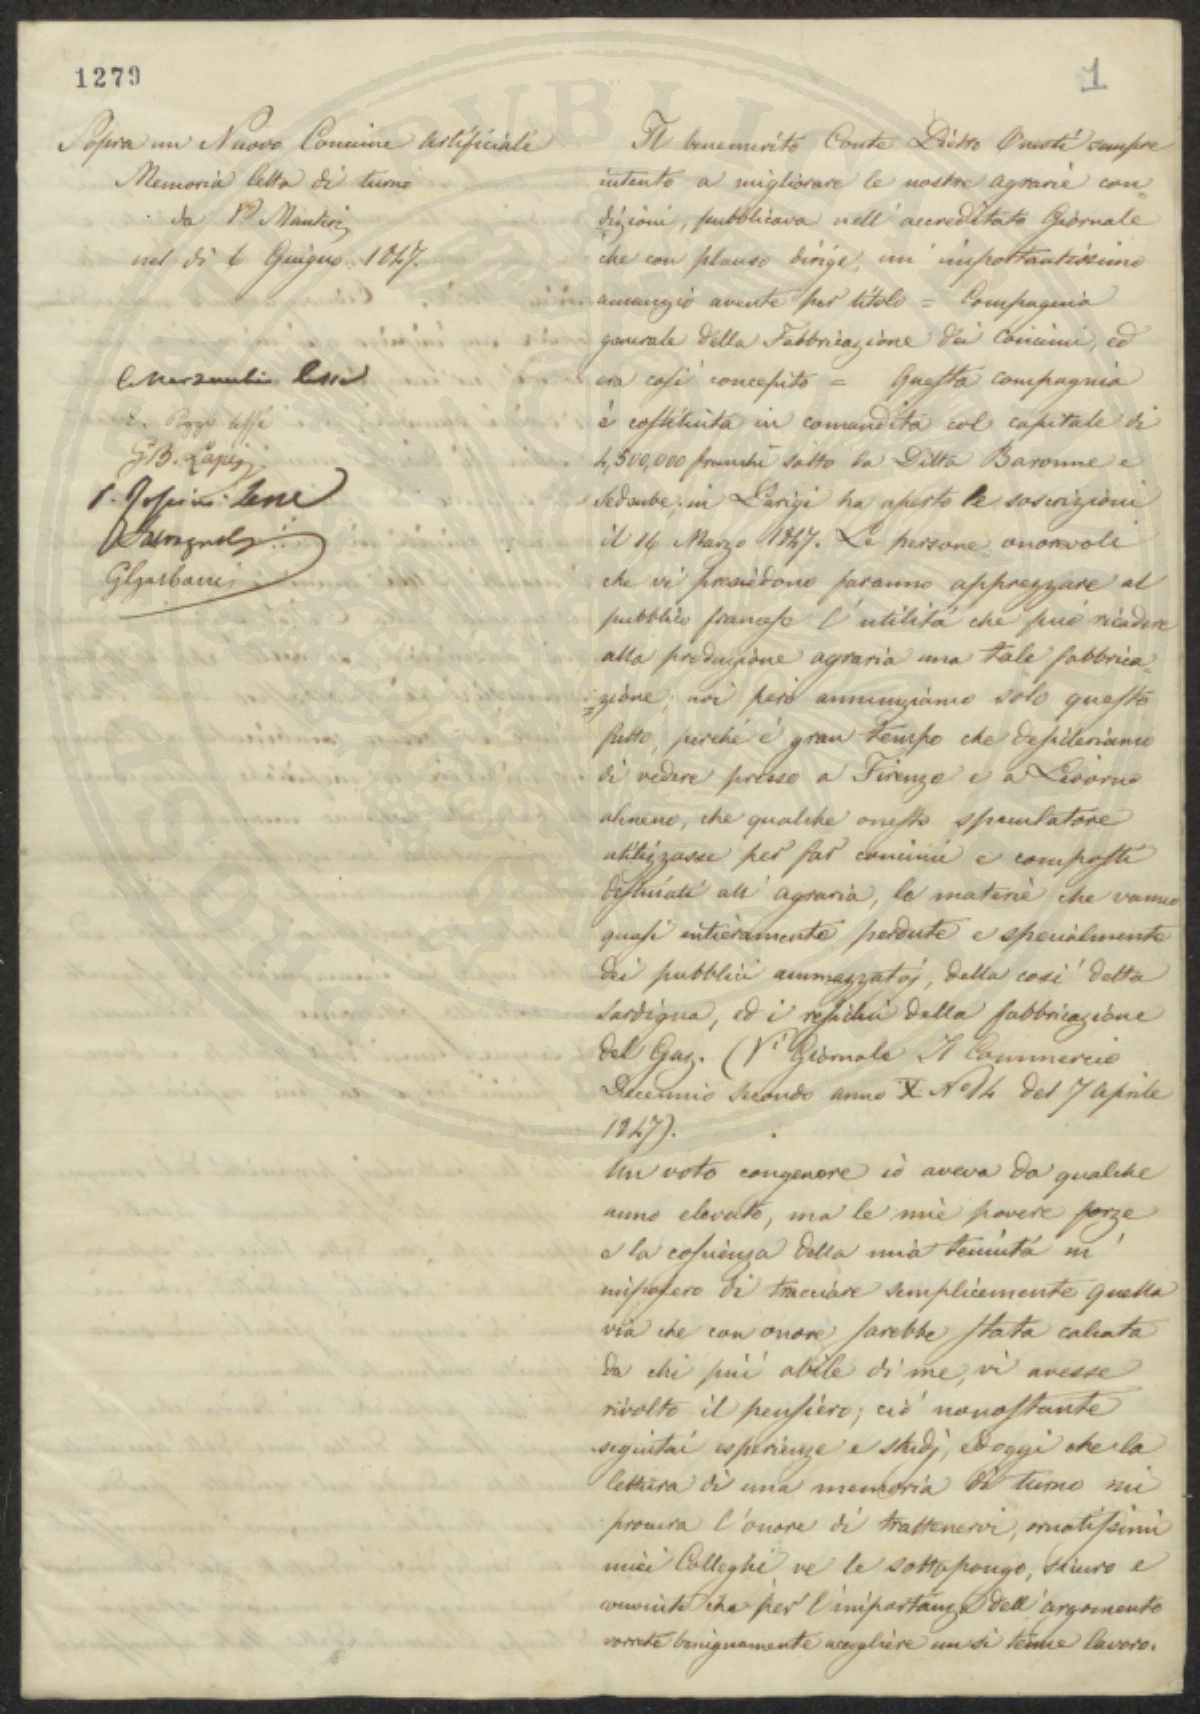 1279
1
Sopra un Nuovo Concime Artificiale
Memoria letta di turno
da
nel dì 6 Giugno 1847.
lessi
E. Poggi lessi
G.B. Lapi
Il benemerito Conte Pietro Onesti sempre
intento a migliorare le nostre agrarie con-
dizioni, pubblicava nell' accreditato Giornale
che con plauso dirige, un importantissimo
annunzio avente per titolo = Compagnia
generale della Fabbricazione dei Concimi, ed
era così concepito = Questa compagnia
è costituita in comandita col capitale di
4,500,000 franchi sotto la Ditta Baronne e
in Parigi ha aperto le soscrizioni
il 14 Marzo 1847. Le persone onorevoli
che vi presiedono faranno apprezzare al
pubblico francese l'utilità che può ricadere
alla produzione agraria una tale fabbrica-
=zione; noi però annunziamo solo questo
fatto, perché è gran tempo che desideriamo
di vedere presso a Firenze e a Livorno
almeno, che qualche onesto speculatore
utilizzasse per far concimi e composti
destinati all' agraria, le materie che vanno
quasi intieramente perdute e specialmente
dei pubblici ammazzatoj, della così detta
Sardigna, ed i residui della fabbricazione
del Gaz. (Vi Giornale Il Commercio
Decennio secondo anno X No 14 del 7 Aprile
1847).
Un voto congenere io aveva da qualche
anno elevato, ma le mie povere forze
e la coscienza della mia tenuità m'
imposero di tracciare semplicemente quella
via che con onore sarebbe stata calcata
da chi più abile di me, vi avesse
rivolto il pensiero; ciò nonostante
seguitai esperienze e studj, ed oggi che la
lettura di una memoria di turno mi
procura l'onore di trattenervi, ornatissimi
miei Colleghi, ve le sottopongo, sicuro e
convinto che per l'importanza dell' argomento
vorrete benignamente accogliere un sì tenue lavoro.